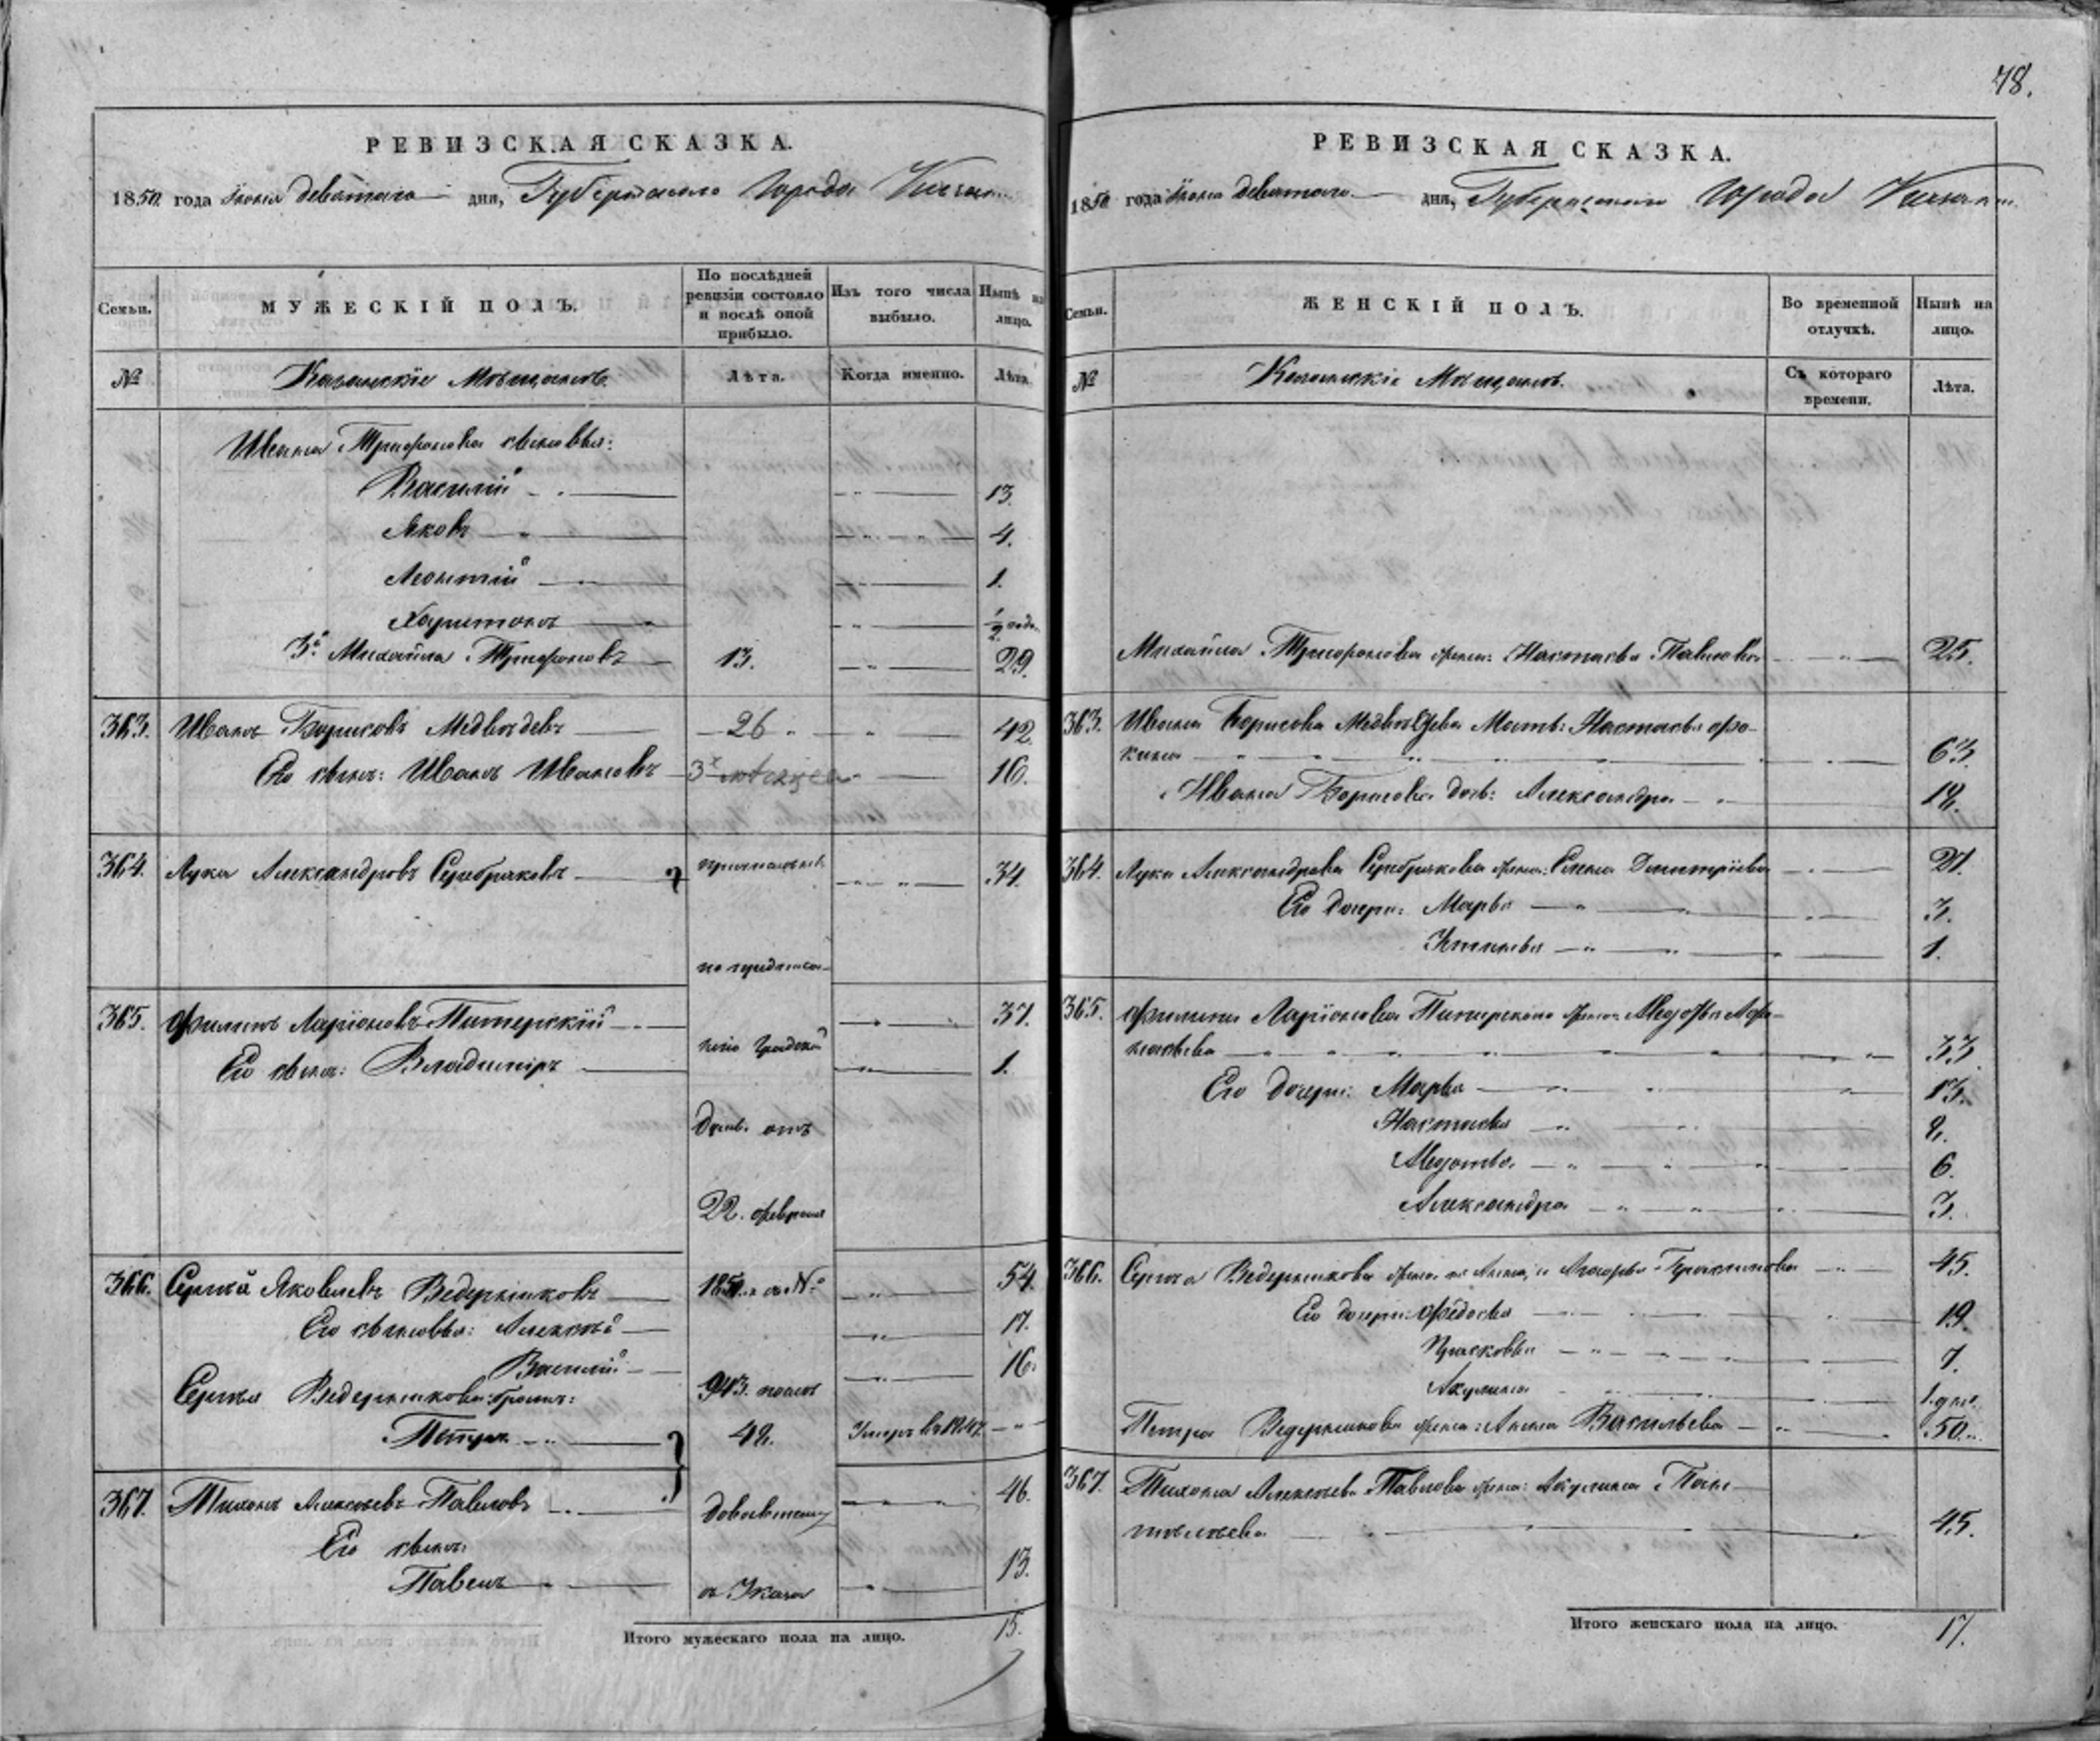 РЕВИЗСКАЯ СКАЗКА.
1850 года Іюня девятаго дня, Губернскаго Города Казани
Семьи. МУЖЕСКІЙ ПОЛЪ. По послѣдней ревизіи состояло и послѣ оной прибыло. Изъ того числа выбыло. Нынѣ на лицо.
№ Казанскіе Мѣщане. Лѣта. Когда именно. Лѣта.
Ивана Трифонова сыновья:
Василій 13.
Яковъ 4.
Леонтій 1.
Харитонъ 1/2 года
3й Михайла Трифоновъ 13. 29.
363. Иванъ Борисовъ Медвѣдевъ 26 42.
Его сынъ: Иванъ Ивановъ 3х мѣсяцевъ 16.
364. Лука Александровъ Серебряковъ 34.
по предписа-
365. Филипъ Ларіоновъ Питерскій 37.
нію Градской
Его сынъ: Владиміръ 1.
Думы отъ
22. февраля
366. Сергѣй Яковлевъ Ведерниковъ 1850. за № 54.
Его сыновья: Алексѣй 17.
Василій 16.
943. послѣ
Сергѣя Ведерникова братъ:
Петръ 42. Умеръ въ 1847.
367. Тихонъ Алексѣевъ Павловъ 46.
Его сынъ:
Павелъ 13.
съ Указа
Итого мужескаго пола на лицо. 15.
78.
РЕВИЗСКАЯ СКАЗКА.
1850 года Іюня девятаго дня, Губернскаго Города Казани
Семьи. ЖЕНСКІЙ ПОЛЪ. Во временной отлучкѣ. Нынѣ на лицо.
№ Казанскіе Мѣщане. Съ котораго времени. Лѣта.
Михайла Трифонова жена: Настасья Павлова 25.
363. Ивана Борисова Медвѣдева Мать: Настасья Фо-
кина 63.
Ивана Борисова дочь: Александра 12.
364. Луки Александрова Серебрякова жена: Елена Дмитріева
Его дочери: Марья 3.
Устинья 1.
365. Филипа Ларіонова Питерскаго жена: Авдотья Афо-
насьева 33.
Его дочери: Марья 13.
Настасья
Авдотья 6.
Александра 3.
366. Сергѣя Ведерникова жена Герасимова 45.
Его дочери: Федосья 19.
Прасковья 7.
Акулина
Петра Ведерникова жена: Анна Васильева 50.
367. Тихона Алексѣева Павлова жена: Акулина Пан-
телѣева 45.
Итого женскаго пола на лицо. 17.